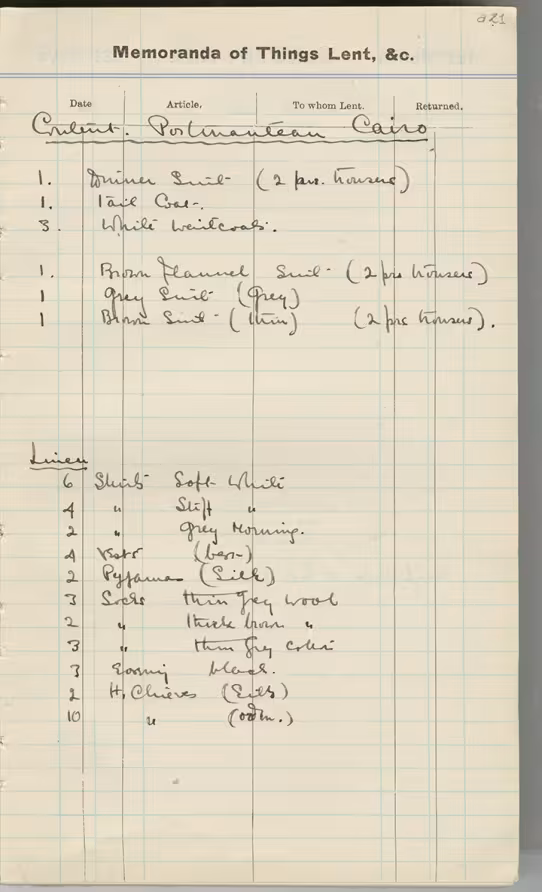 221
Memoranda of Things Lent, &c.
Date Article. To whom Lent. Returned.
Content. Portmanteau Cairo
1. Dinner Suit (2 prs. trousers)
1. Tail Coat.
3. White Waistcoats.
1. Brown Flannel Suit (2 prs trousers)
1 Grey Suit (Grey)
1 Brown Suit (thin) (2 prs trousers).
Linen
6 Shirts Soft White
4 " Stiff "
2 " Grey Morning.
4 Vests
2 Pyjamas (Silk)
3 Socks thin grey wool
2 " thick brown "
3 " thin grey cotton
3 Evening black.
2 H. Chieves (Silk)
10 " (odn.)